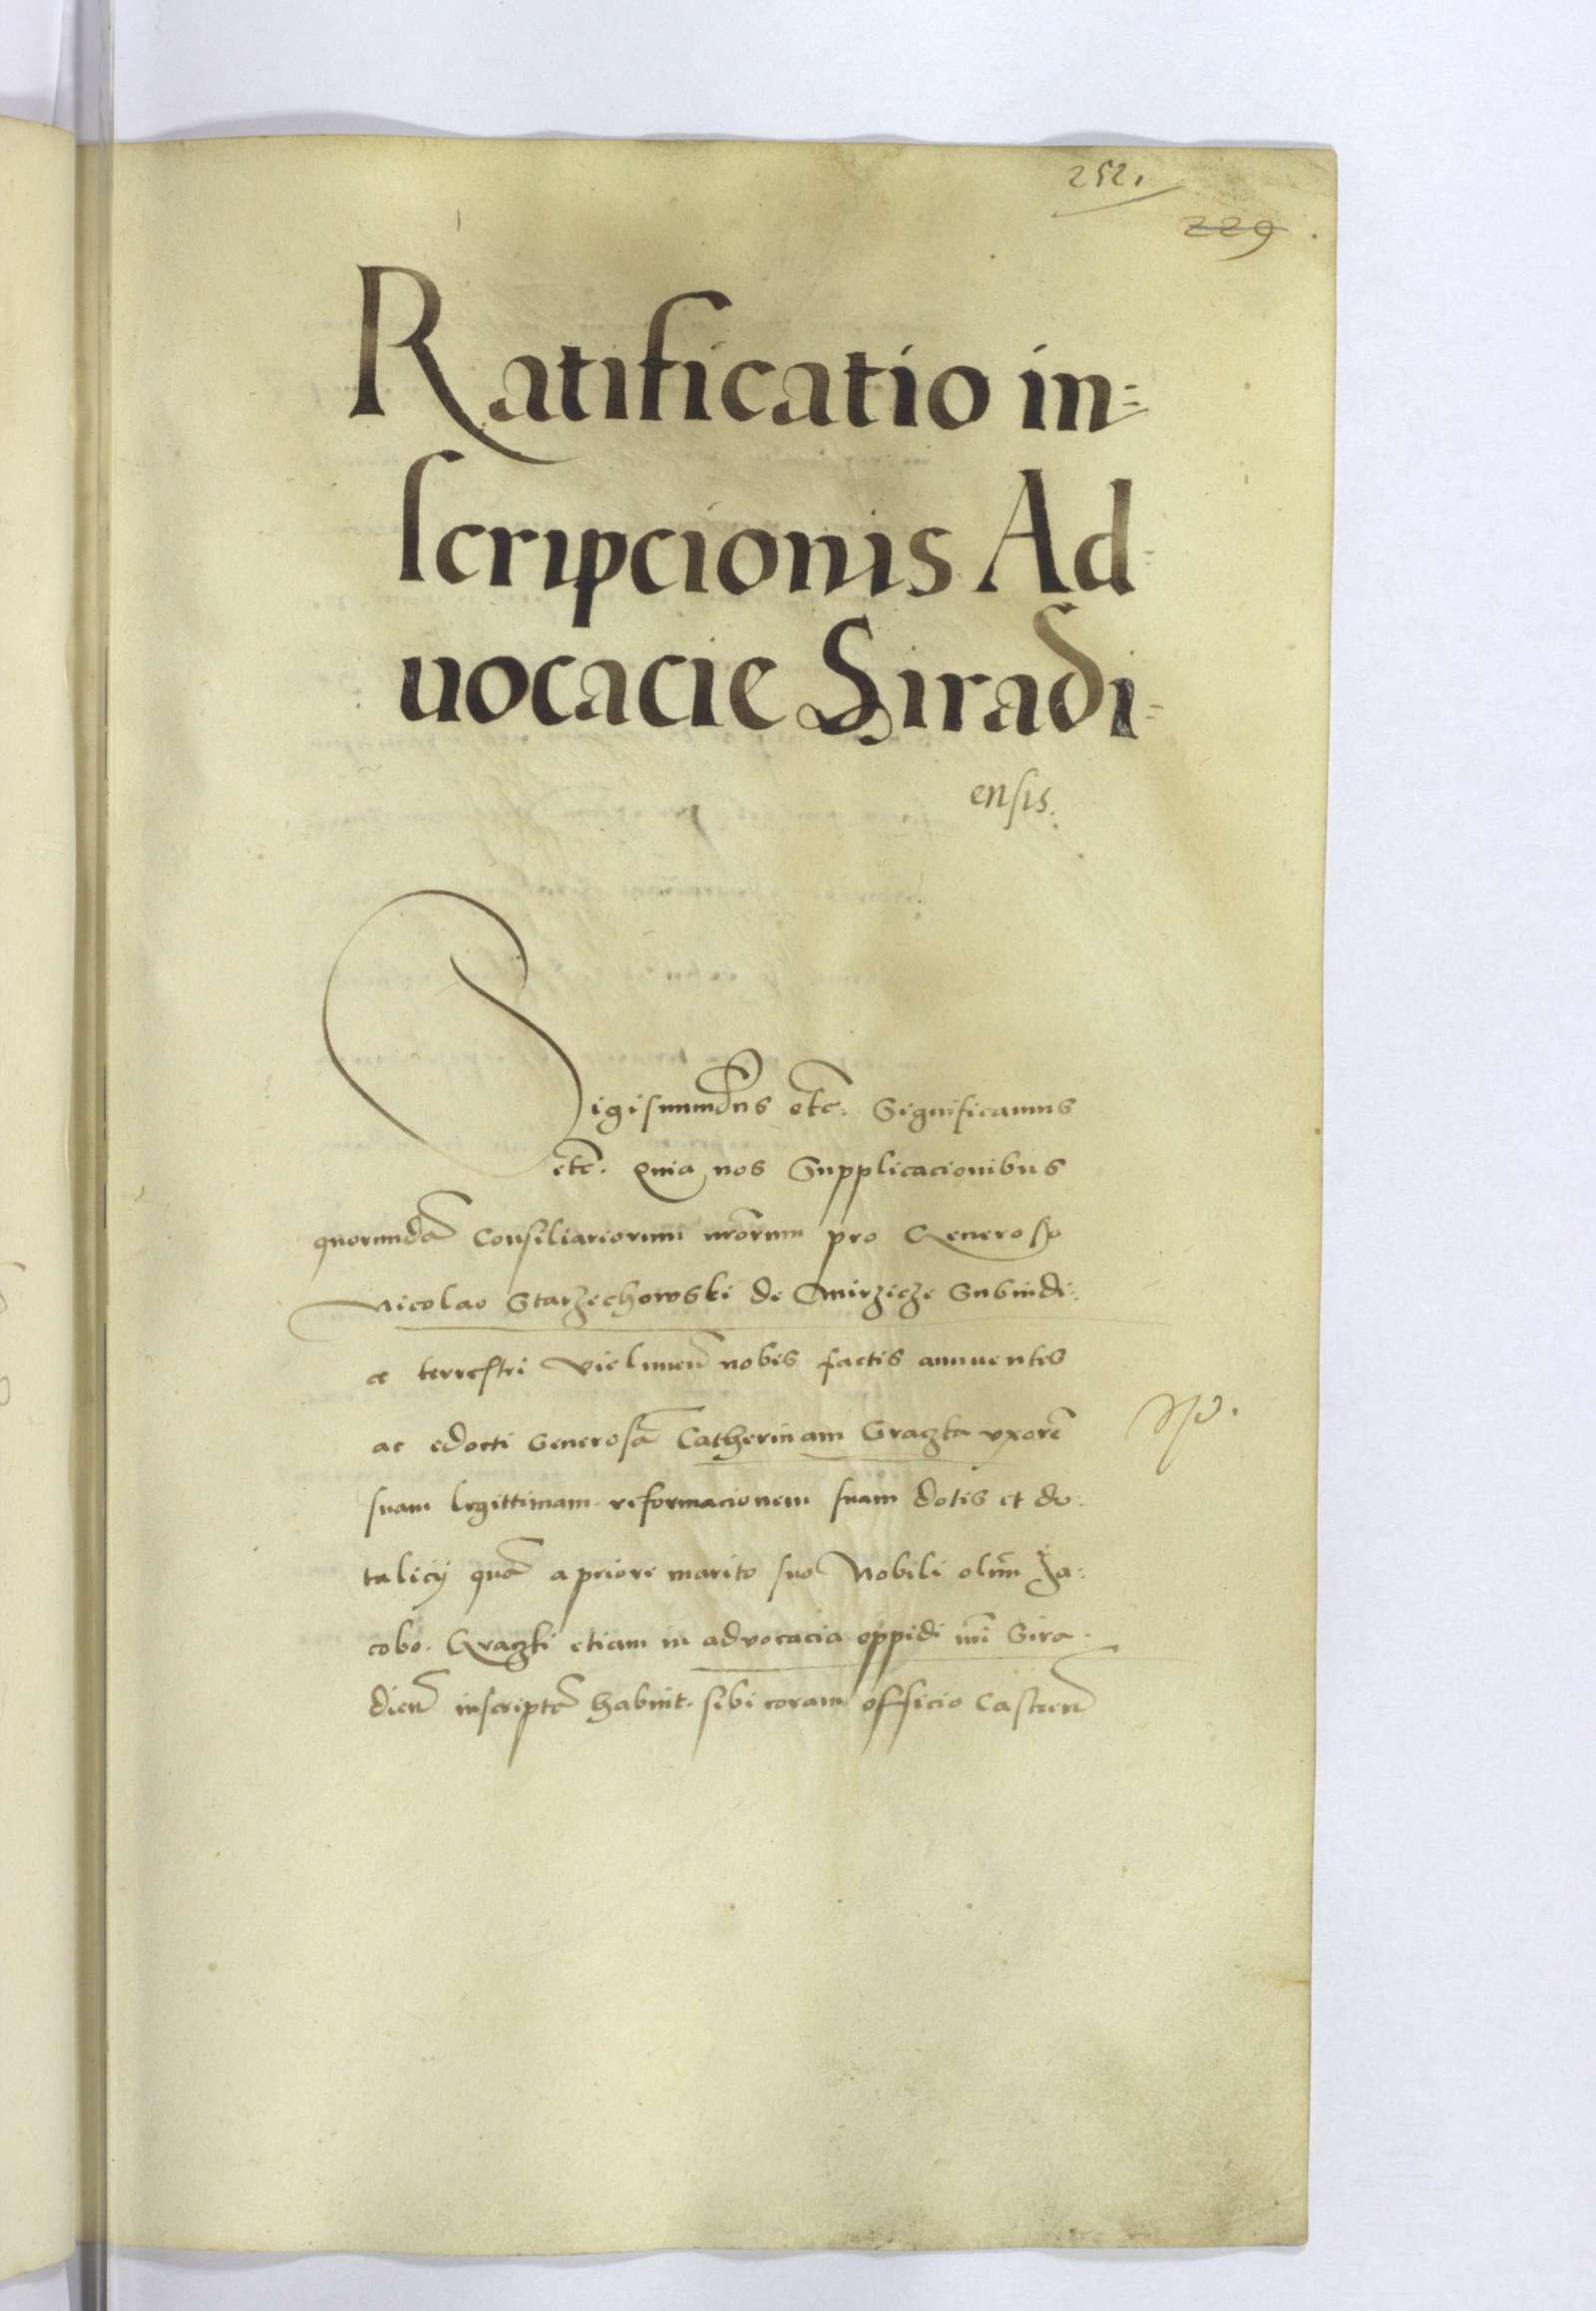 252.
229.
Ratificatio in=
scripcionis Ad=
uocacie Siradi=
ensis.
Sigismundus etc. Significamus
etc. Quia nos Supplicacionibus
quorundã Consiliariorum nrõrum pro Generoso
Nicolao Starzechowski de Mirzicze Subiudi:
ce terrestri Vielunen̄ nobis factis annuentes
ac edocti Generosã Catherinam Graczka vxorẽ
suam legittimam reformacionem suam dotis et do:
talicij quã a priore marito suo Nobili olim Ja:
cobo. Graczki etiam in advocacia oppidi nr̃i Sira-
dien̄ inscriptã habuit. sibi coram officio Castren̄